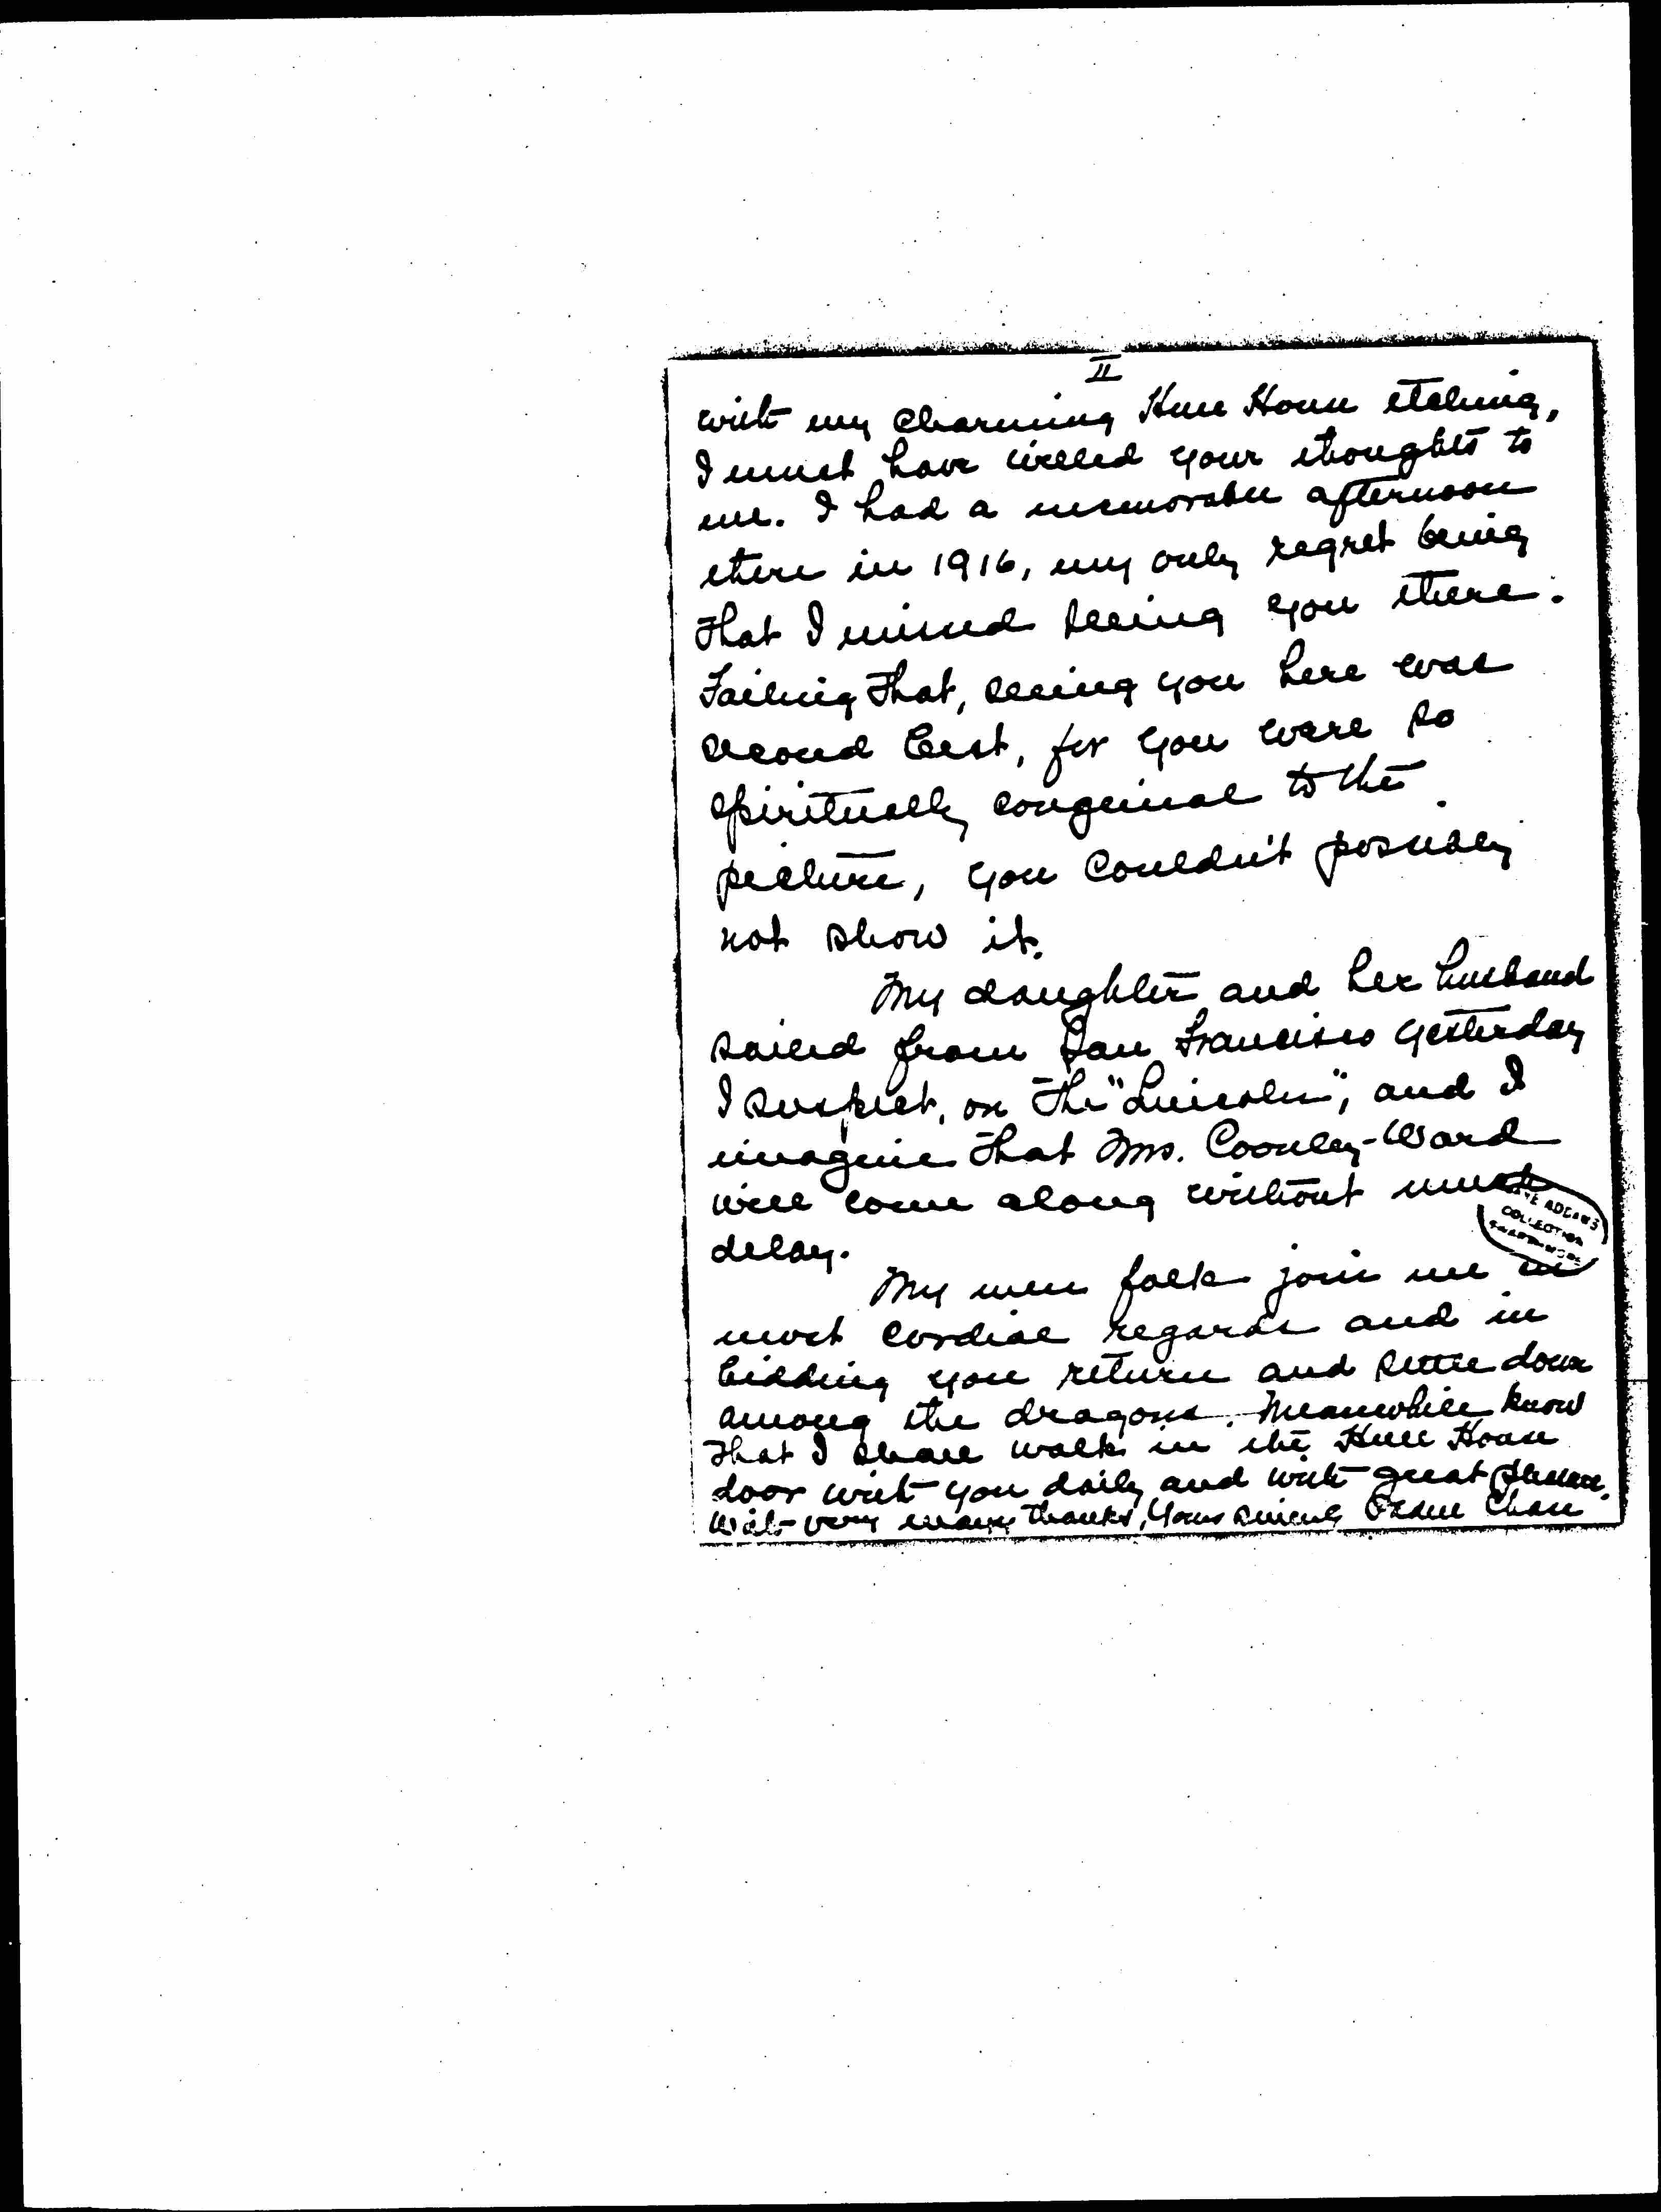 II
with my charming Hull House etching,
I must have willed your thoughts to
me. I had a memorable afternoon
there in 1916, my only regret being
that I missed seeing you there.
Failing that, seeing you here was
second best, for you were so
spiritually congenial to the
picture, you couldn't possibly
not show it.
My daughter and her husband
sailed from San Francisco yesterday
I suspect, on the "Lincoln", and I
imagine that Mrs. Coonley-Ward
will come along without much
delay.
JANE ADDAMS
COLLECTION
SWARTHMORE
My men folk join me in
most cordial regards and in
bidding you return and settle down
among the dragons. Meanwhile know
that I shall walk in the Hull House
door with you daily and with great pleasure.
With very many thanks, Yours sincerely